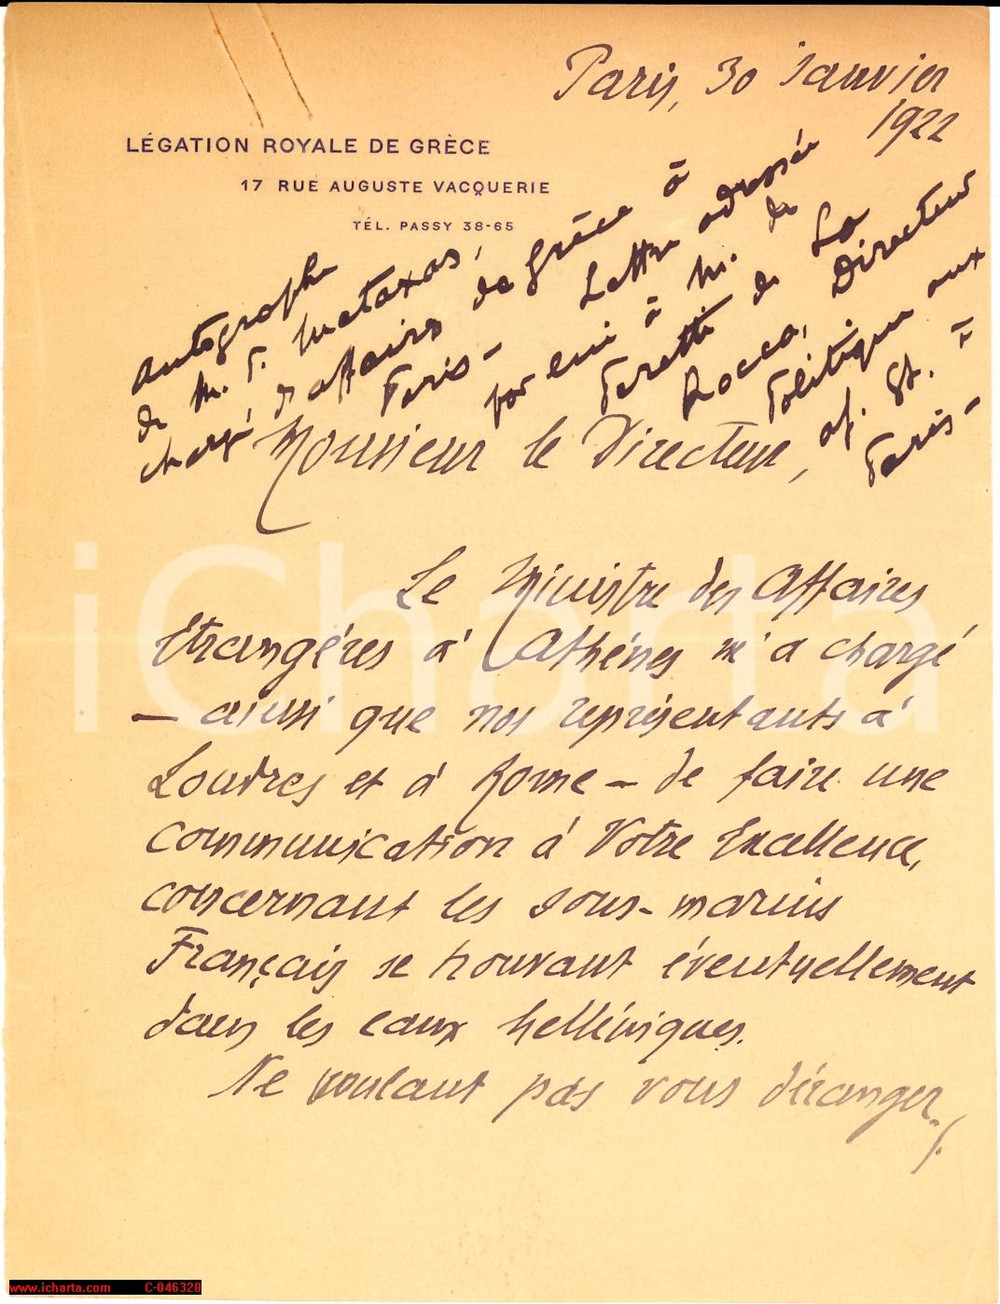 Paris, 30 Janvier
1922
LÉGATION ROYALE DE GRÈCE
17 RUE AUGUSTE VACQUERIE
TÉL. PASSY 38-65
Autographe
de M. P. Metaxas,
chargé d'affaires de Grèce à
Paris - Lettre adressée
par lui à M. de
Peretti de La
Rocca, Directeur
Politique aux
af. Et. =
Paris -
Monsieur le Directeur,
Le Ministre des Affaires
Etrangères à Athènes m'a chargé
— ainsi que nos représentants à
Londres et à Rome — de faire une
communication à Votre Excellence,
concernant les sous-marins
Français se trouvant éventuellement
dans les eaux helléniques.
Ne voulant pas vous déranger,
iCharta
www.icharta.com C-046320